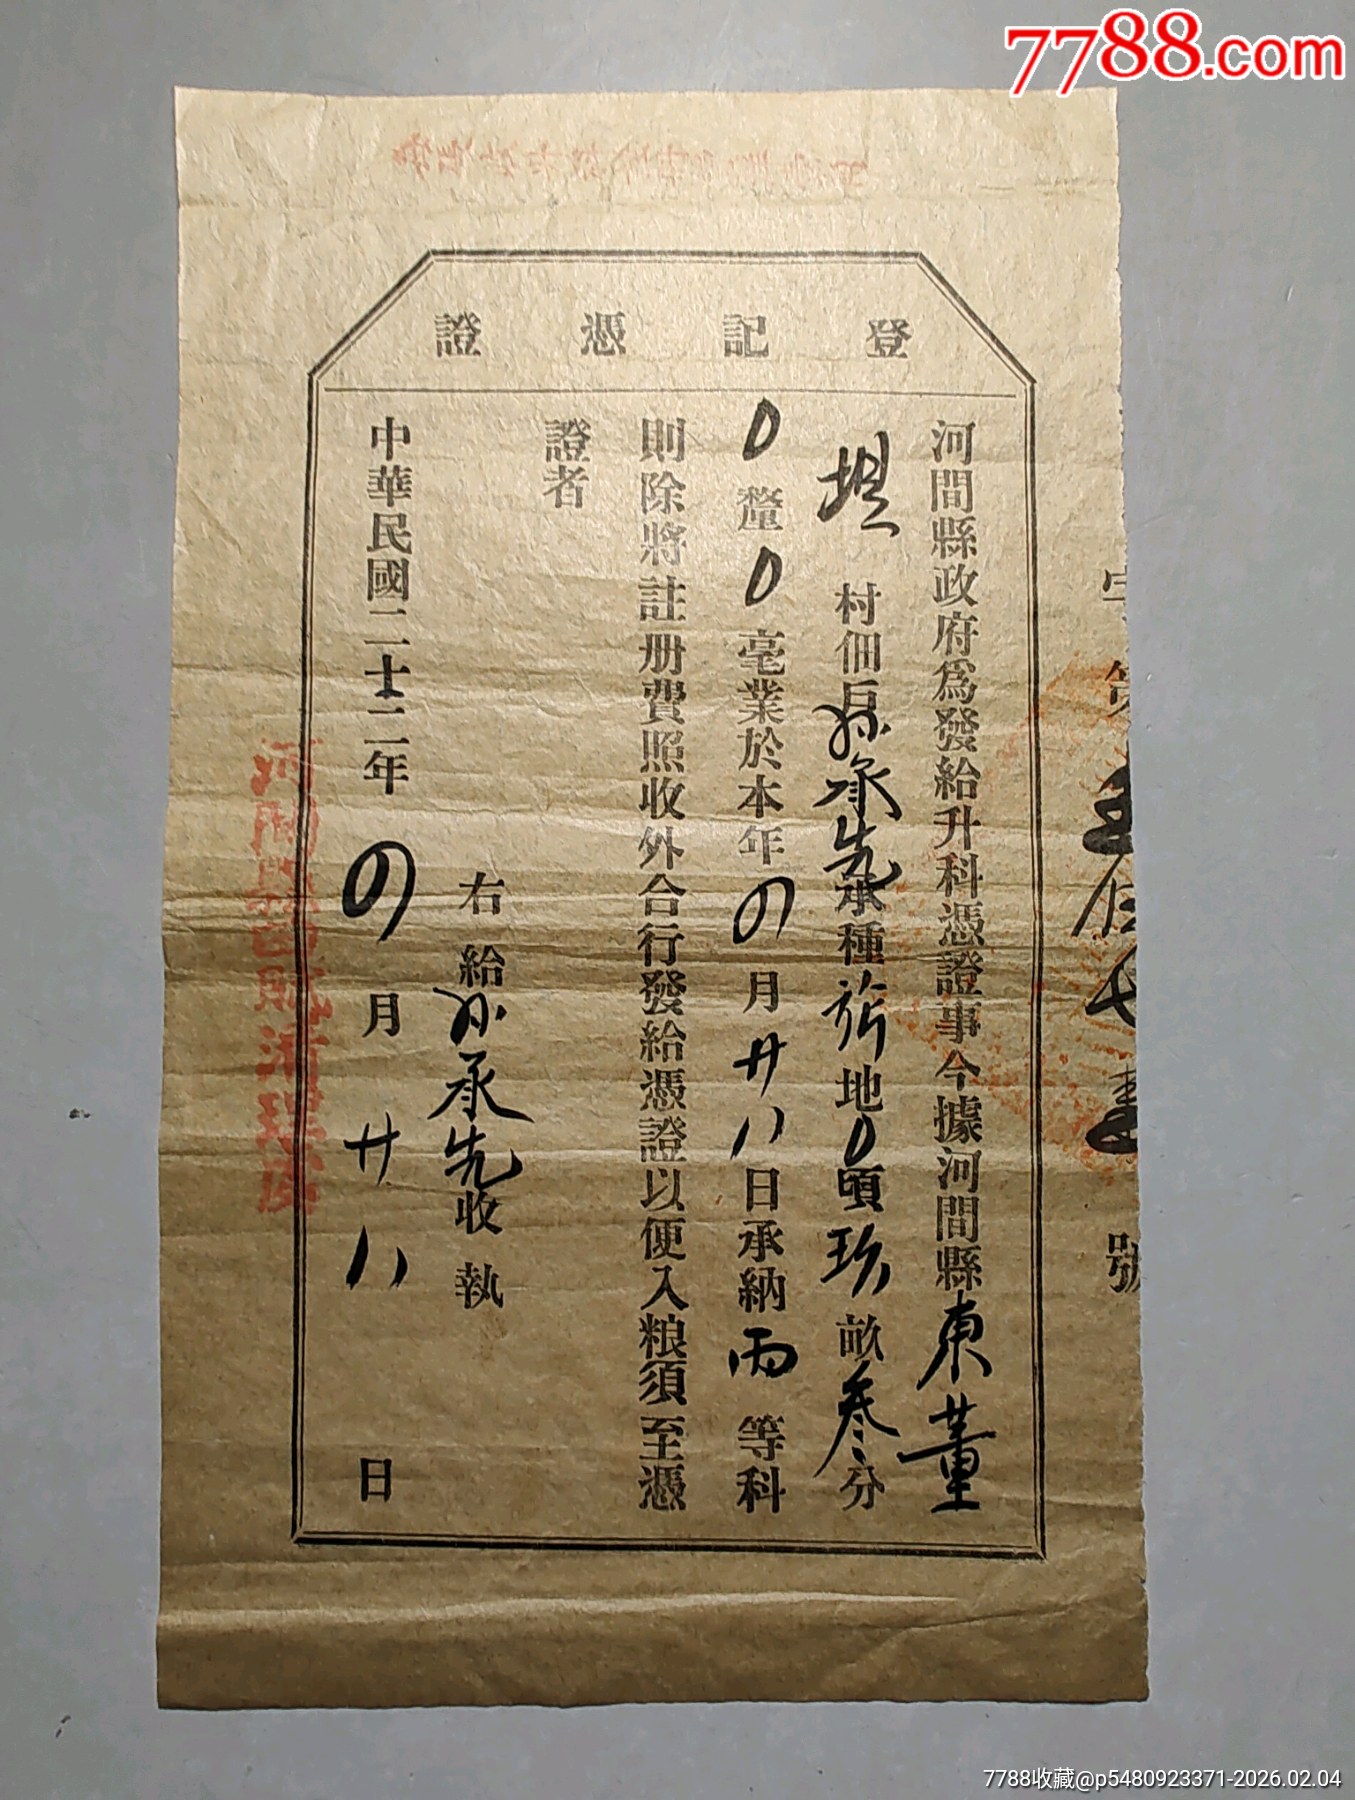 7788.com
登記憑證
字第 號
河間縣政府為發給升科憑證事今據河間縣東董
村佃戶孫承先承種旂地0頃玖畝叄分
0釐0毫業於本年四月廿八日承納丙等科
則除將註册費照收外合行發給憑證以便入粮須至憑
證者
右給孫承先收執
中華民國二十二年四月廿八日
河間縣旗賦清理處
7788收藏@p5480923371-2026.02.04